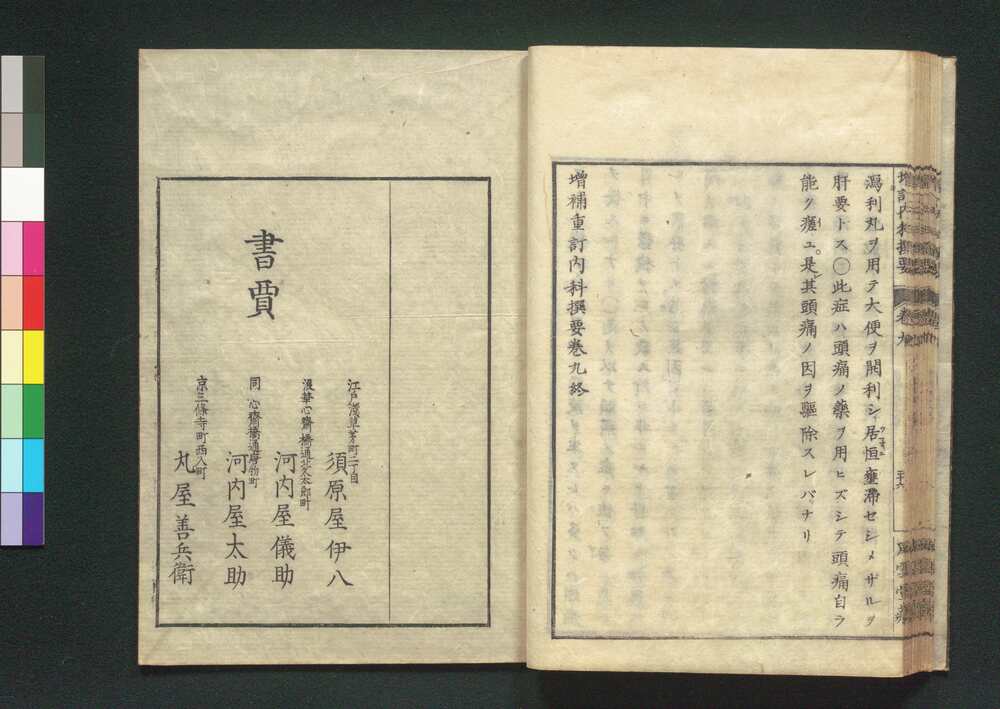 瀉利丸ヲ用テ大便ヲ開利シ居恒壅滯セシメザルヲ
肝要トス〇此症ハ頭痛ノ藥ヲ用ヒズシテ頭痛自ラ
能ク癒ユ是其頭痛ノ因ヲ驅除スレバナリ
增補重訂內科撰要卷九終
書賈
江戶淺草茅町二丁目
須原屋伊八
浪華心齋橋通北久太郎町
河內屋儀助
同心齋橋通唐物町
河內屋太助
京三條寺町西入町
丸屋善兵衛